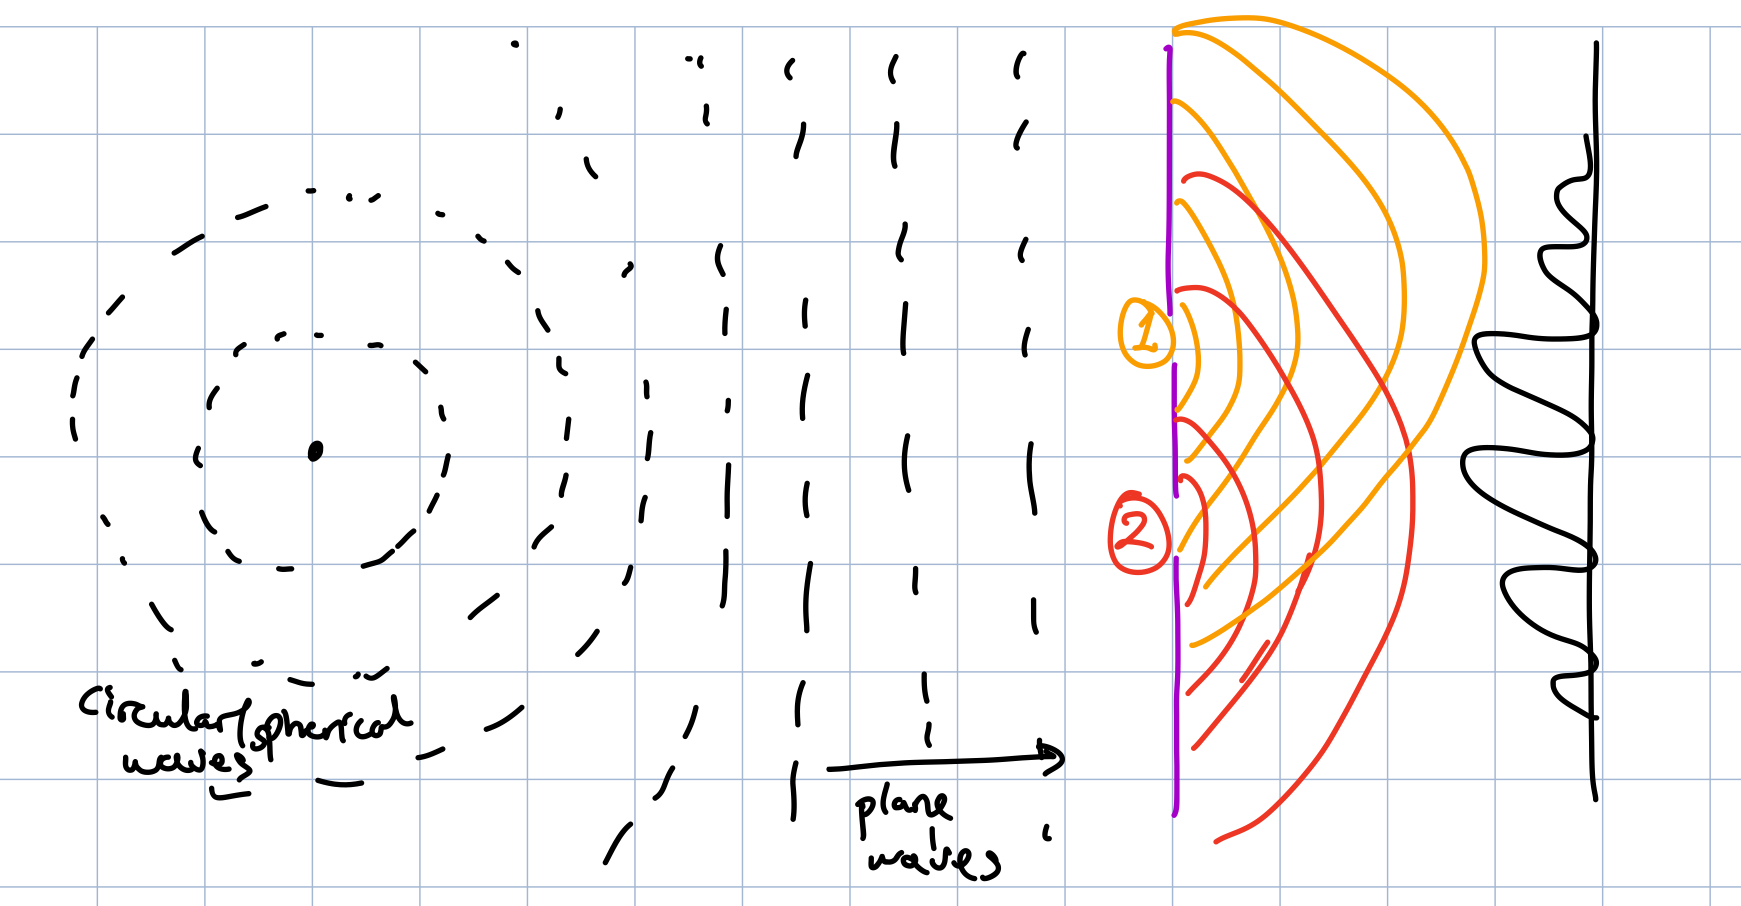 Circular/spherical
waves
plane
waves
1
2